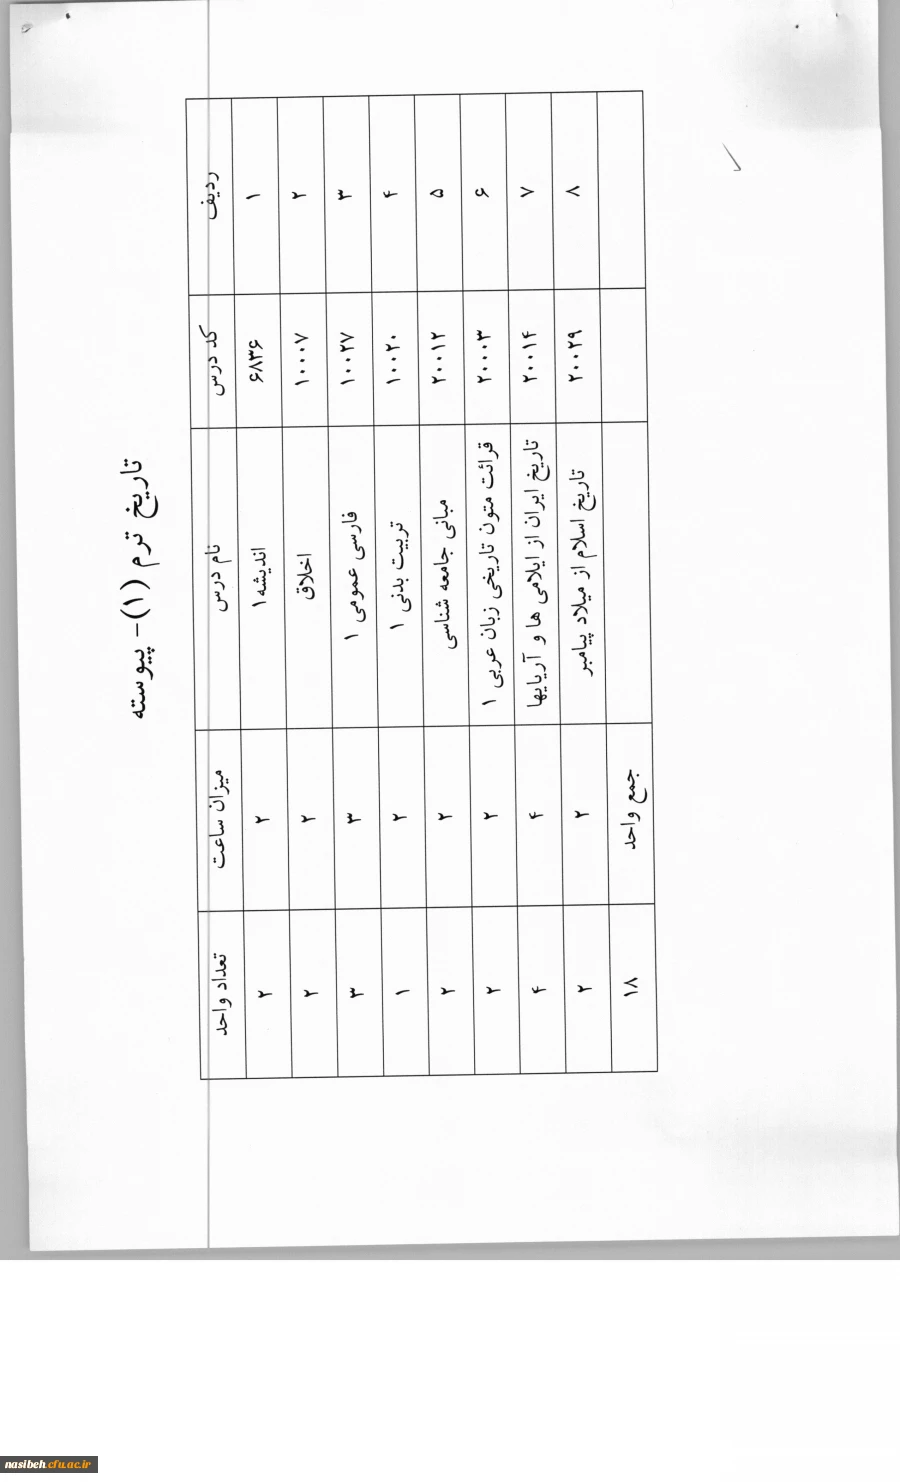 تاریخ ترم (۱)- پیوسته
ردیف کد درس نام درس میزان ساعت تعداد واحد
۱ ۶۸۳۶ اندیشه ۱ ۲ ۲
۲ ۱۰۰۰۷ اخلاق ۲ ۲
۳ ۱۰۰۲۷ فارسی عمومی ۱ ۳ ۳
۴ ۱۰۰۲۰ تربیت بدنی ۱ ۲ ۱
۵ ۲۰۰۱۲ مبانی جامعه شناسی ۲ ۲
۶ ۲۰۰۰۳ قرائت متون تاریخی زبان عربی ۱ ۲ ۲
۷ ۲۰۰۱۴ تاریخ ایران از ایلامی ها و آریاییها ۴ ۴
۸ ۲۰۰۲۹ تاریخ اسلام از میلاد پیامبر ۲ ۲
جمع واحد ۱۸
nasibeh.cfu.ac.ir